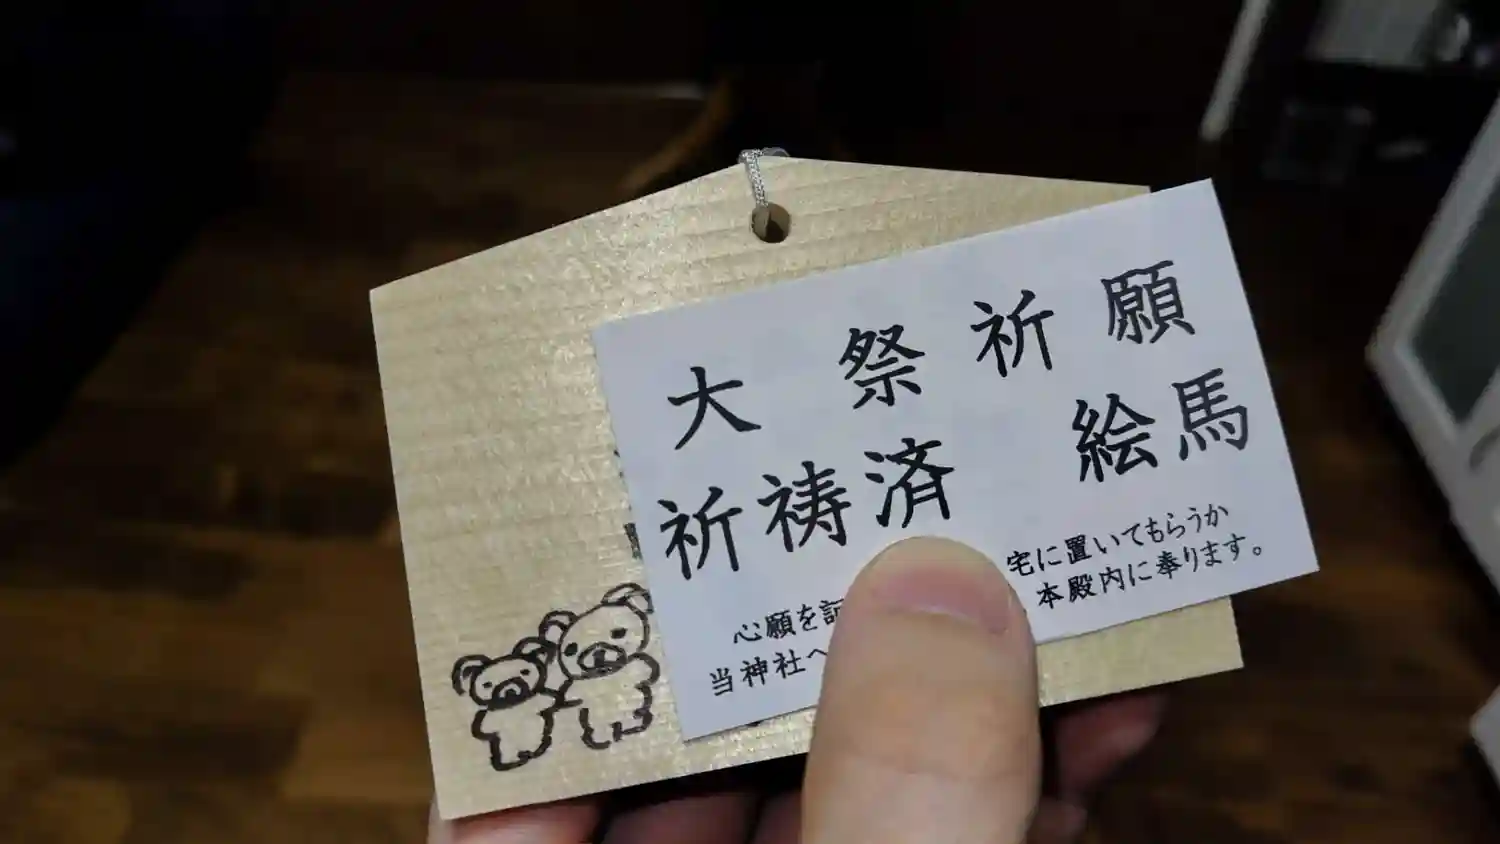 大祭祈願
祈祷済 絵馬
心願を記
宅に置いてもらうか
当神社へ
本殿内に奉ります。